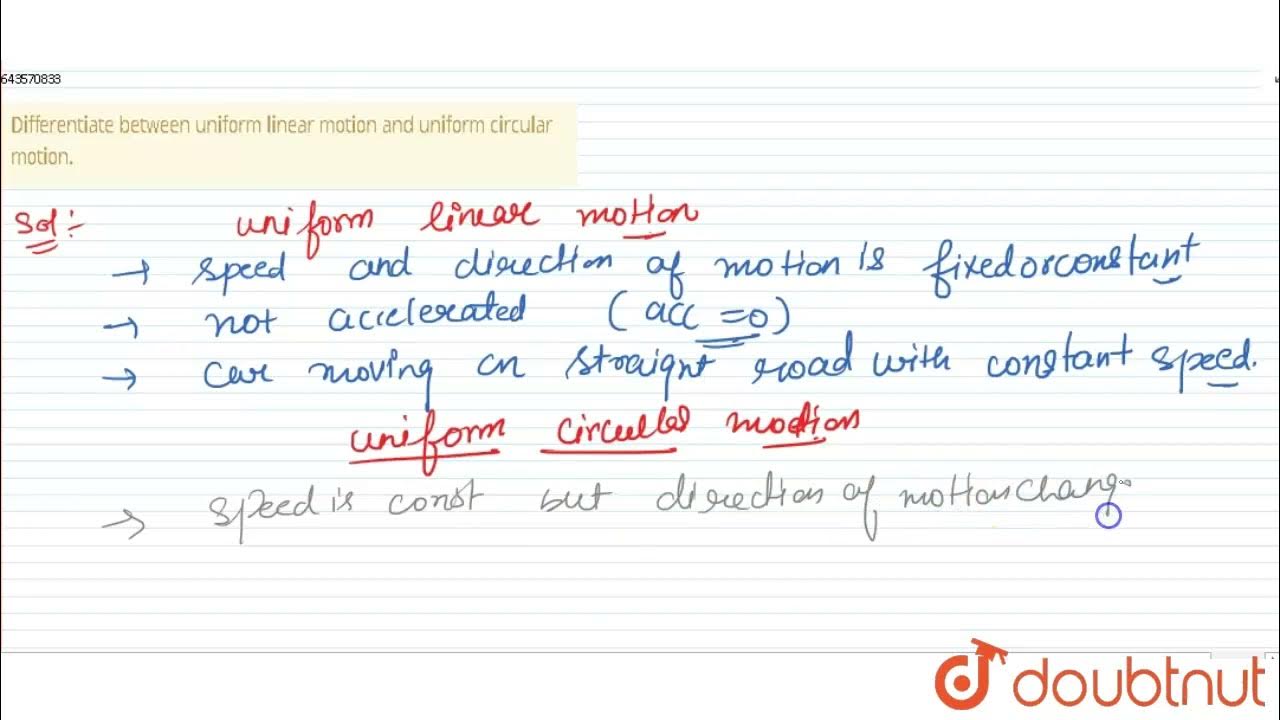 643570833
Differentiate between uniform linear motion and uniform circular
motion.
Sol:-
uniform linear motion
→ speed and direction of motion is fixed or constant
→ not accelerated (acc = 0)
→ car moving on straight road with constant speed.
uniform circular motion
→ speed is const but direction of motion chang
doubtnut